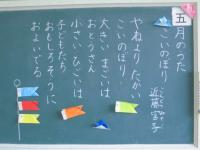 五月のうた
こいのぼり
近藤宮子
やねより たかい
こいのぼり
大きい まごいは
おとうさん
小さい ひごいは
子どもたち
おもしろそうに
およいでる